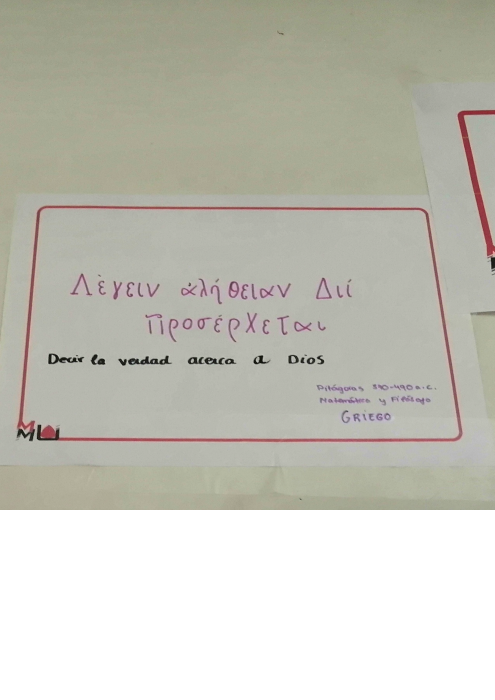 Λέγειν ἀλήθειαν Διί
προσέρχεται
Decir la verdad acerca a Dios
Pitágoras 570-490 a.c.
Matemático y Filósofo
GRIEGO